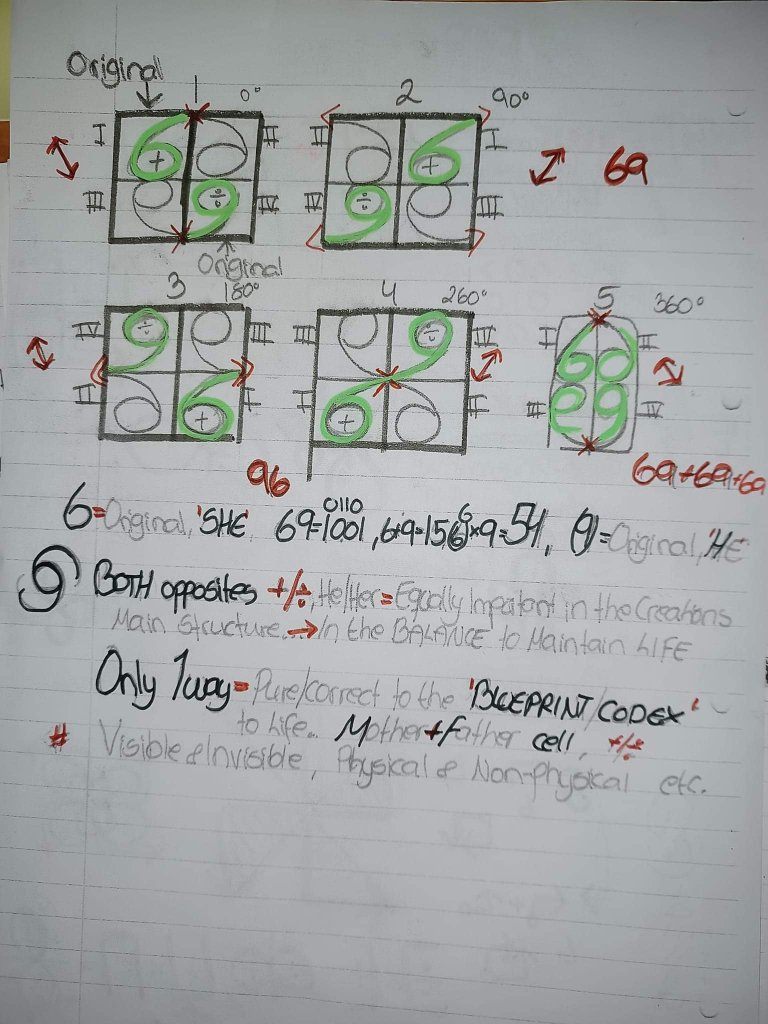 Original
1 0° 2 90°
I 6 + II II 6 + I 69
III 9 ÷ IV IV 9 ÷ III
Original
3 180° 4 260° 5 360°
IV 9 ÷ III III 9 ÷ IV I 6 II
II 6 + I 6 + I III 9 IV
96 69+69+69
0110
6=Original, 'SHE' 69=1001, 6+9=15, 6×9=54, 9=Original, 'HE'
9 BOTH opposites +/÷, He/Her=Equally Impotant in the Creations
Main Structure...→In the BALANCE to Maintain LIFE
Only 1way=Pure/correct to the 'BLUEPRINT/CODEX'
to Life.. Mother+father cell, +/÷
# Visible & Invisible, Physical & Non-physical etc.